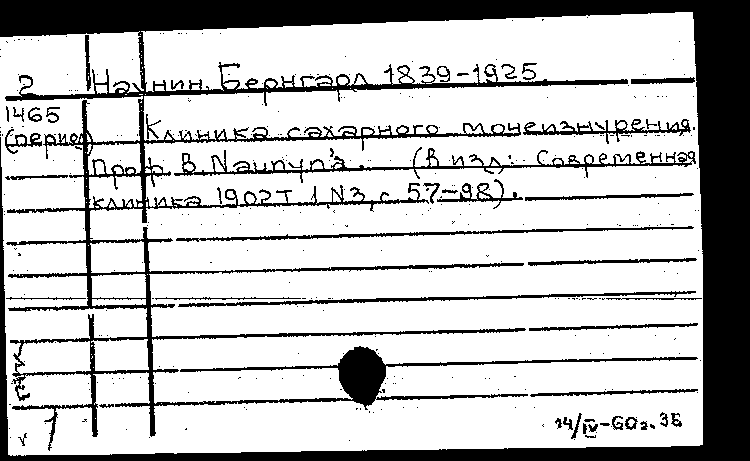 2 Наунин, Бернгард 1839-1925.
1465
(период) Клиника сахарного мочеизнурения.
Проф. B. Naunyn'a. (В изд: Современная
клиника 1902 т 1, N3, с. 57-98).
1
14/IV-60г. 35